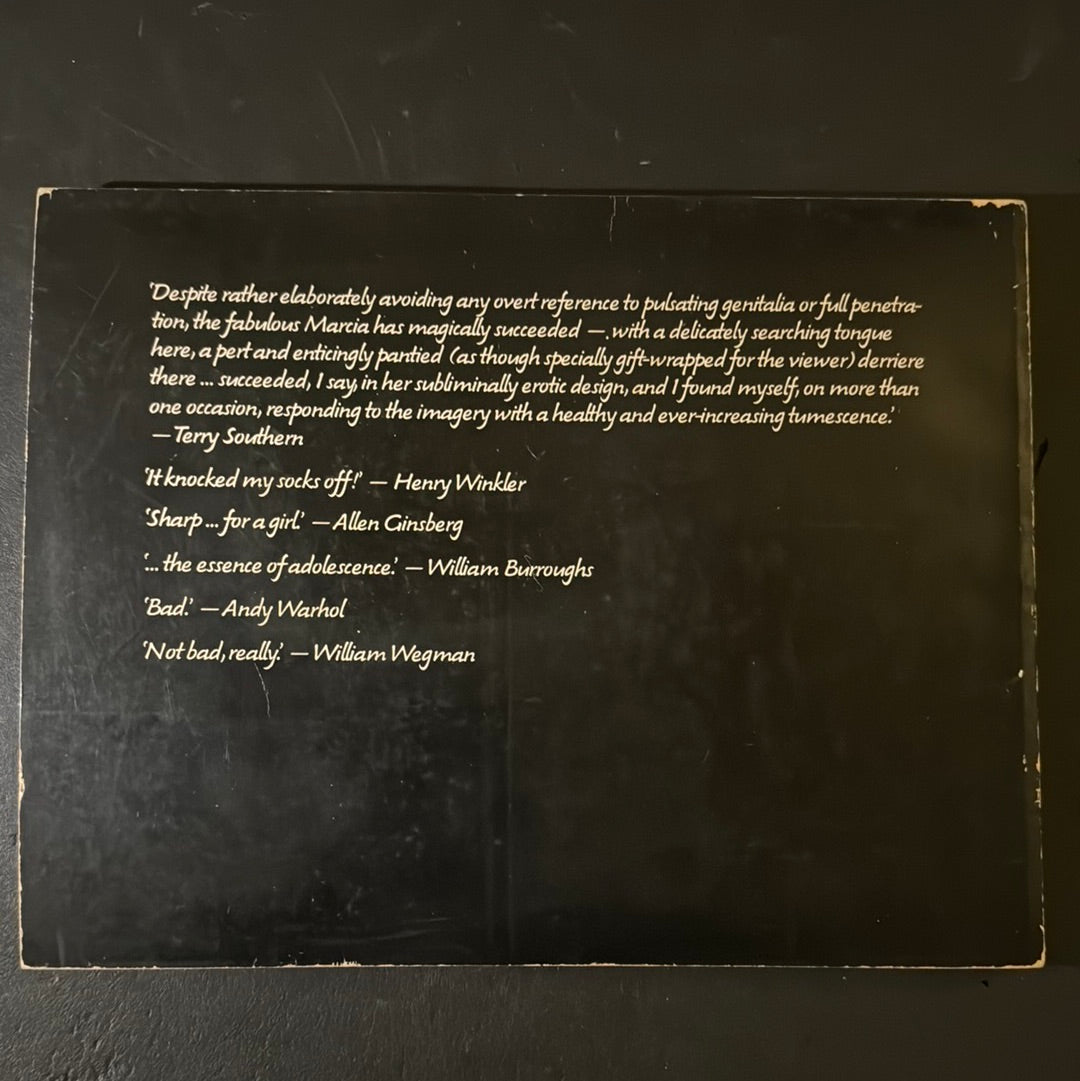 'Despite rather elaborately avoiding any overt reference to pulsating genitalia or full penetra-
tion, the fabulous Marcia has magically succeeded — with a delicately searching tongue
here, a pert and enticingly pantied (as though specially gift-wrapped for the viewer) derriere
there ... succeeded, I say, in her subliminally erotic design, and I found myself, on more than
one occasion, responding to the imagery with a healthy and ever-increasing tumescence.'
— Terry Southern
'It knocked my socks off!' — Henry Winkler
'Sharp ... for a girl.' — Allen Ginsberg
'... the essence of adolescence.' — William Burroughs
'Bad.' — Andy Warhol
'Not bad, really.' — William Wegman